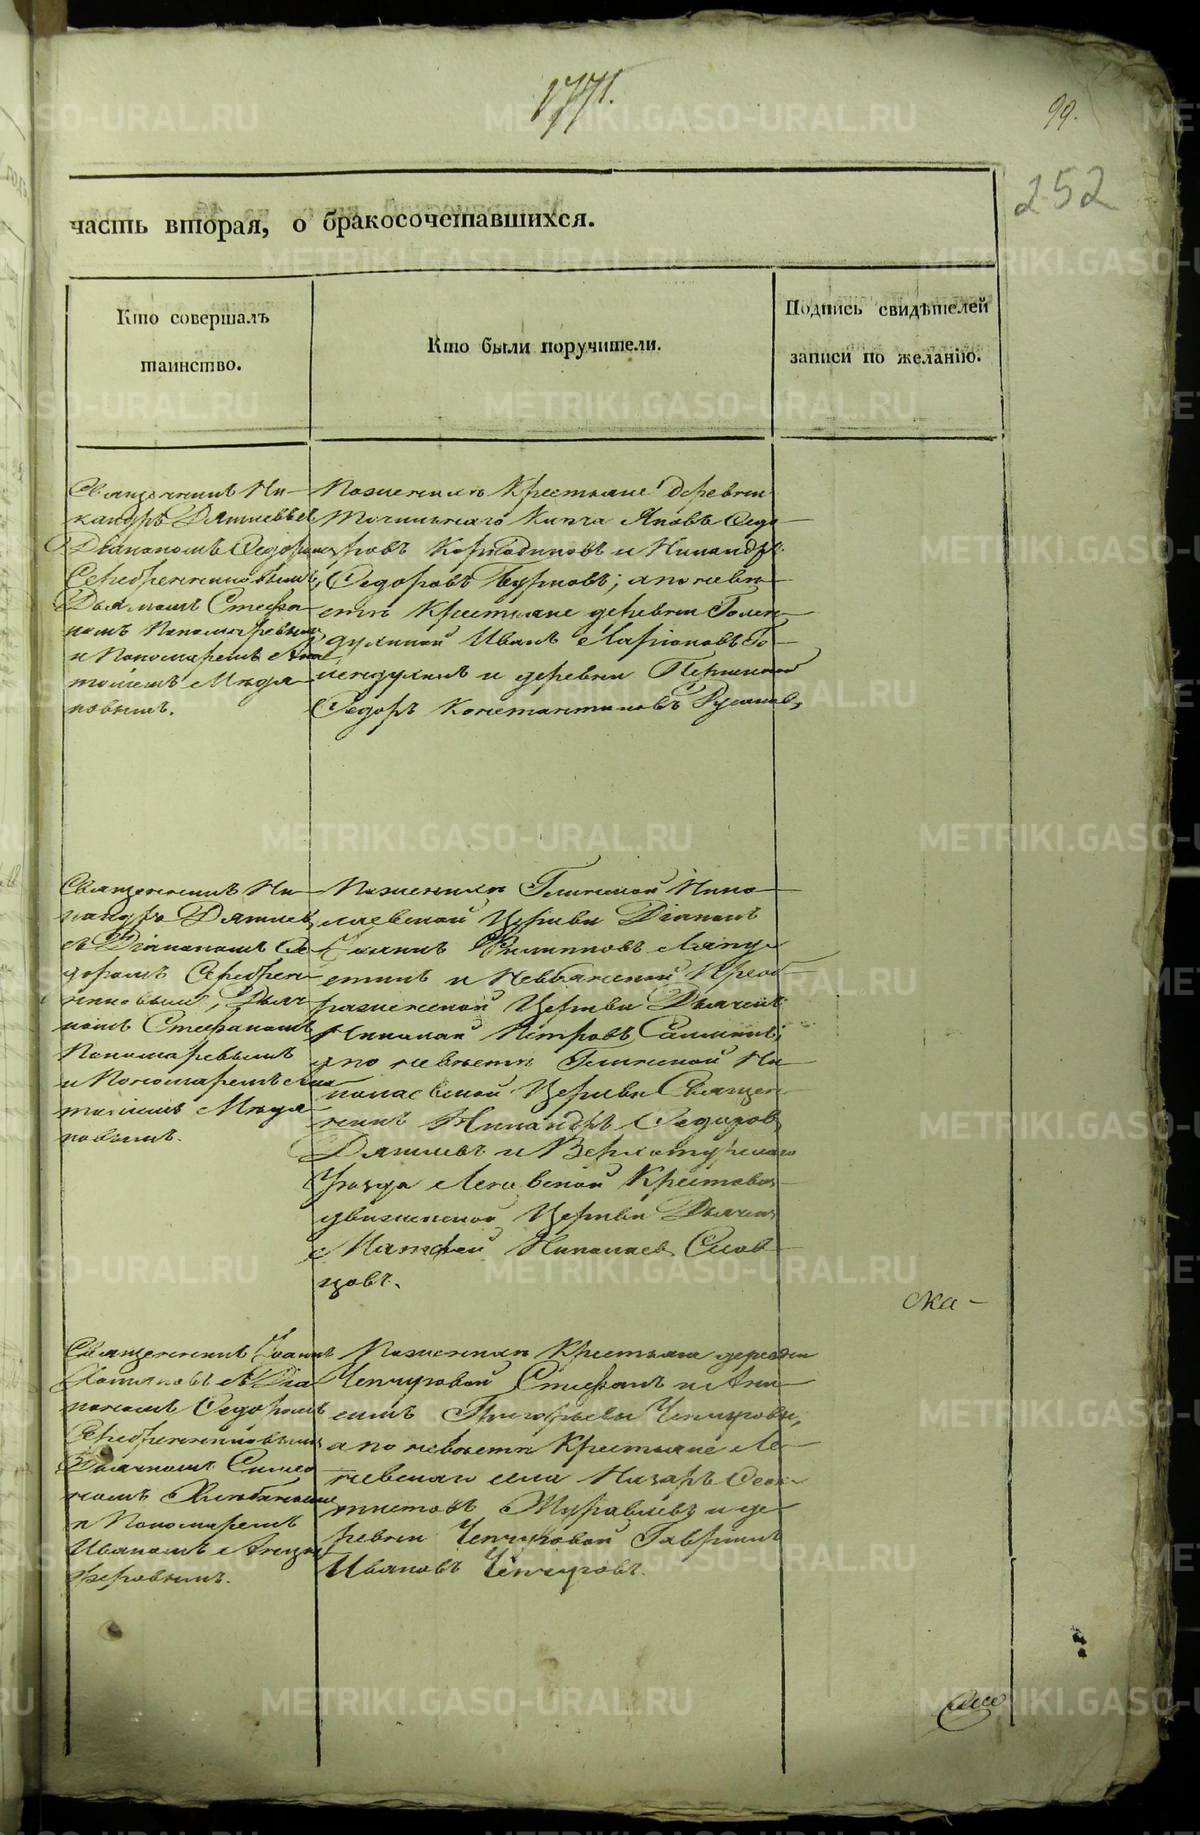 1771.
99.
252
часть вторая, о бракосочетавшихся.
Кто совершалъ
таинство.
Кто были поручители.
Подпись свидѣтелей
записи по желанію.
Священникъ Ни-
кандръ Дягилевъ съ
Діакономъ Ѳедоромъ
Серебренниковымъ,
Дьячкомъ Стефа-
номъ Пономаревымъ
и Пономаремъ Ана-
толіемъ
новымъ.
По женихѣ Крестьяне деревни
Ключа Яковъ Ѳедо-
ровъ и Никандръ
Ѳедоровъ Бурковъ; а по невѣ-
стѣ Крестьяне деревни Голен-
духиной Иванъ Ларіоновъ Го-
лендухинъ и деревни Першиной
Ѳедоръ Константиновъ Русаковъ,
Священникъ Ни-
кандръ Дягилевъ
съ Діакономъ Ѳе-
доромъ Серебрен-
никовымъ, Дьяч-
комъ Стефаномъ
Пономаревымъ
и Пономаремъ Ана-
толіемъ
новымъ.
По женихѣ Глинской Нико-
лаевской Церкви Діаконъ
Іоаннъ Филипповъ Ляпу-
стинъ и Невьянской Преоб-
раженской Церкви Дьячекъ
Николай Петровъ
а по невѣстѣ Глинской Ни-
колаевской Церкви Священ-
никъ Никандръ Ѳедоровъ
Дягилевъ и Верхотурскаго
Уѣзда Леневской Крестовоз-
движенской Церкви Дьячекъ
Матфей Николаевъ Слов-
цовъ.
ска-
Священникъ Іоаннъ
съ Діа-
кономъ Ѳедоромъ
Серебренниковымъ
Дьячкомъ Симео-
номъ
и Пономаремъ
Иваномъ
феровымъ.
По женихѣ Крестьяне деревни
Чепчуговой Стефанъ и Ани-
симъ Григорьевы Чепчуговы,
а по невѣстѣ Крестьяне Ле-
невскаго села Назаръ Ѳеок-
тистовъ Журавлевъ и де-
ревни Чепчуговой Гавріилъ
Ивановъ Чепчуговъ.
METRIKI.GASO-URAL.RU